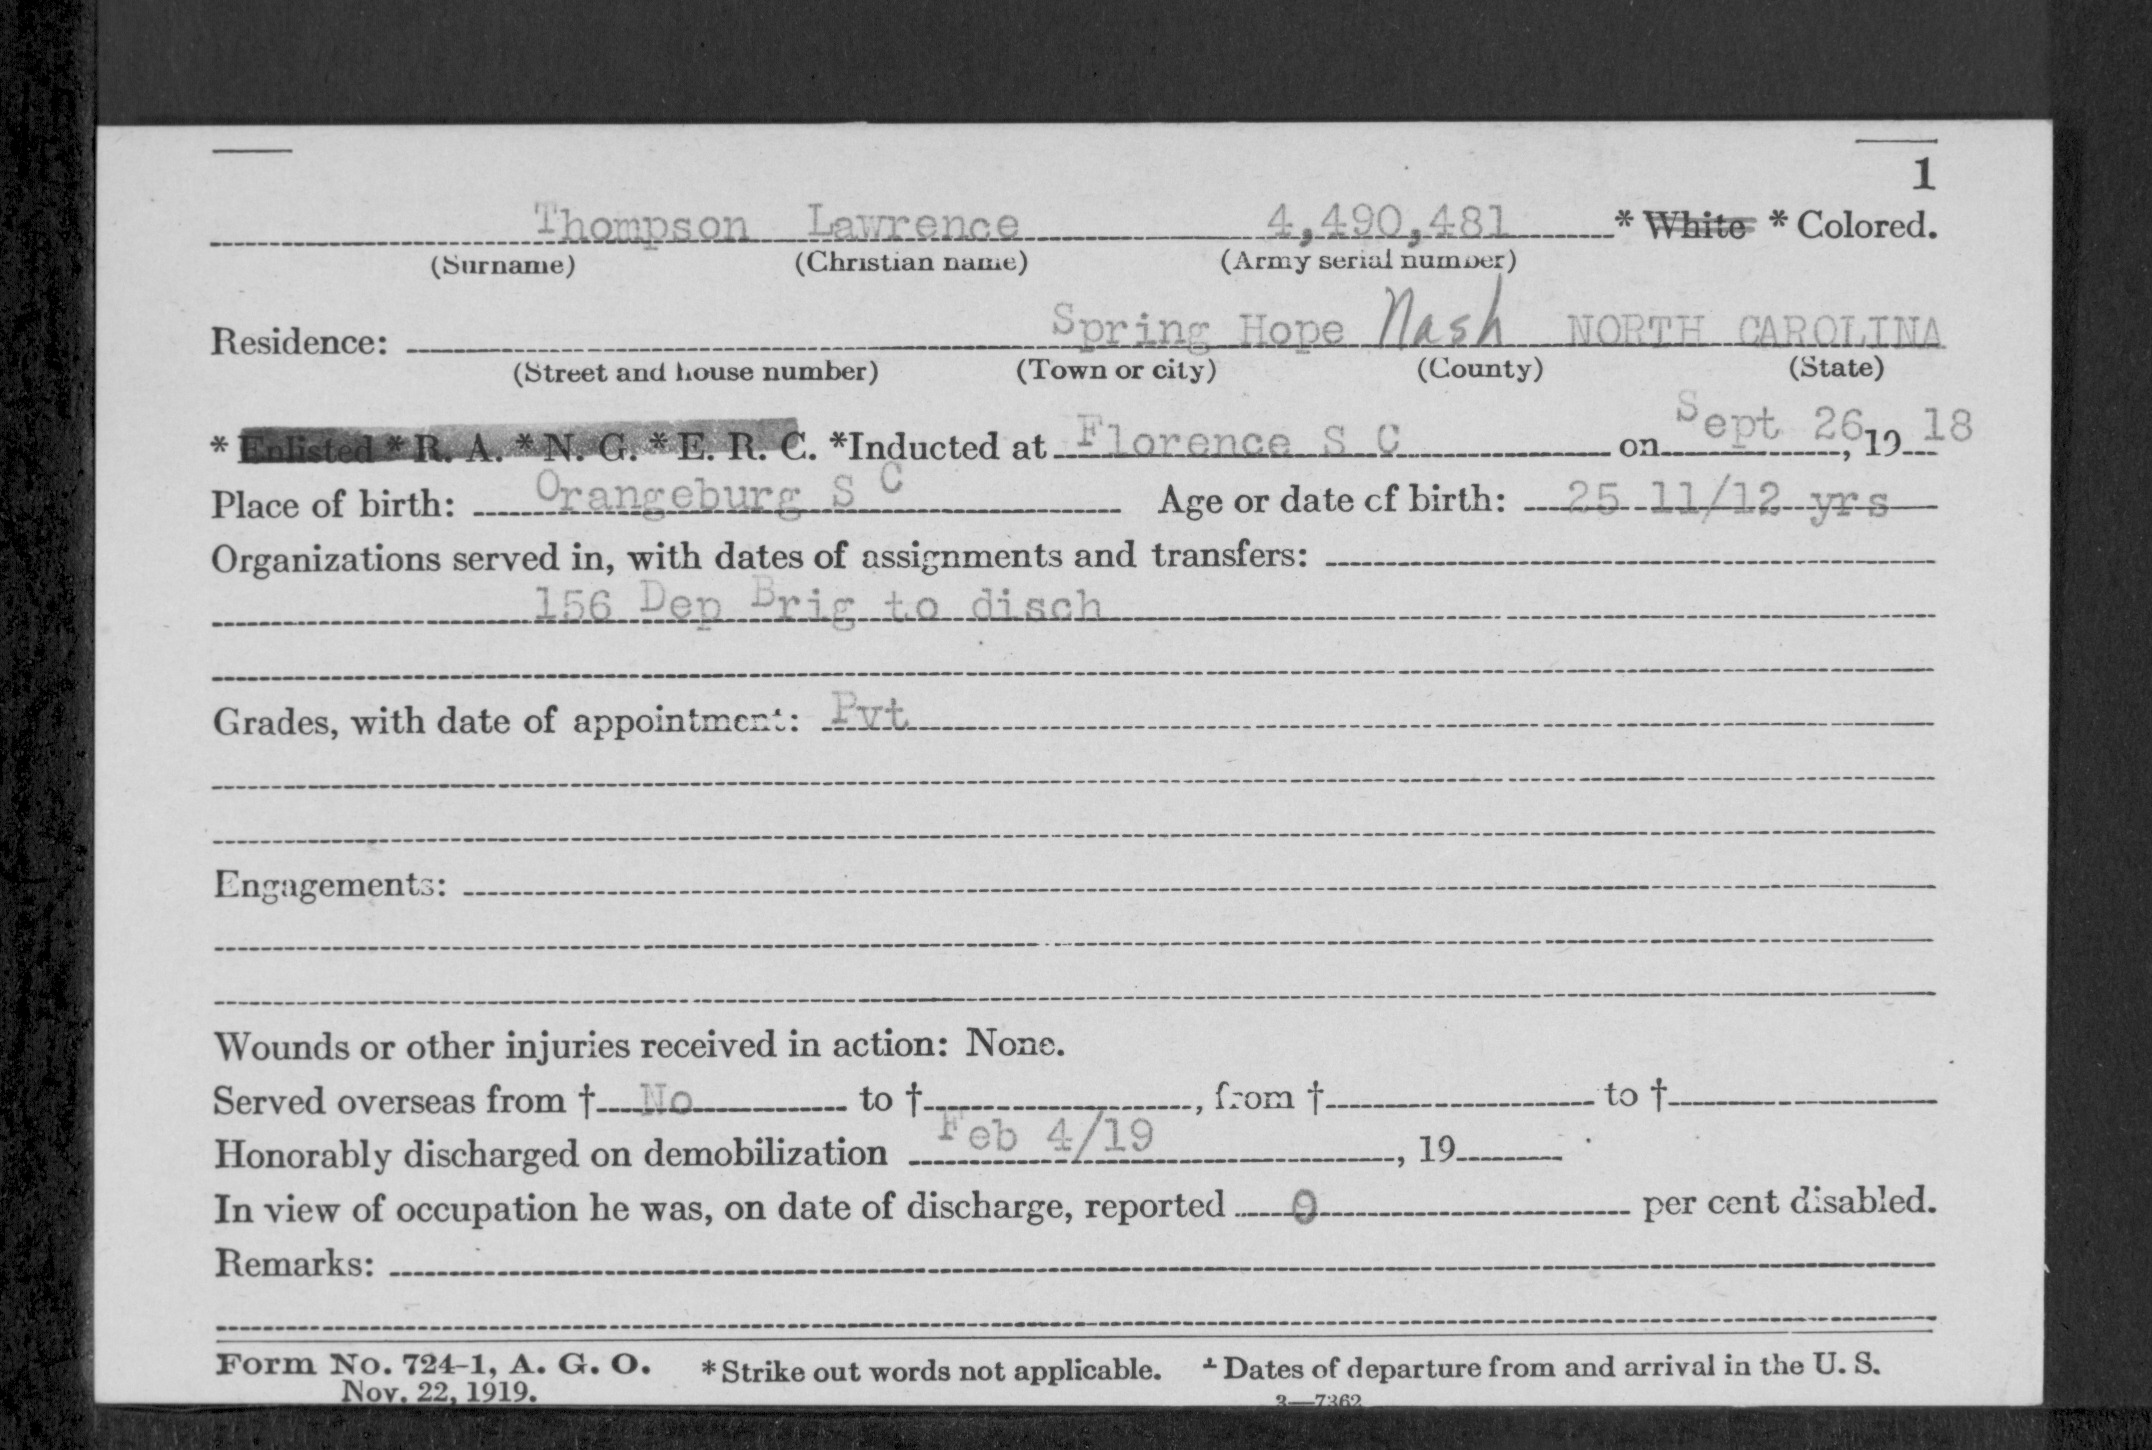 1
Thompson Lawrence 4,490,481 * White * Colored.
(Surname) (Christian name) (Army serial number)
Residence: Spring Hope Nash NORTH CAROLINA
(Street and house number) (Town or city) (County) (State)
* Enlisted * R. A. * N. G. * E. R. C. *Inducted at Florence S C on Sept 26, 19 18
Place of birth: Orangeburg S C Age or date of birth: 25 11/12 yrs
Organizations served in, with dates of assignments and transfers:
156 Dep Brig to disch
Grades, with date of appointment: Pvt
Engagements:
Wounds or other injuries received in action: None.
Served overseas from † No to † , from † to †
Honorably discharged on demobilization Feb 4/19 , 19
In view of occupation he was, on date of discharge, reported 0 per cent disabled.
Remarks:
Form No. 724-1, A. G. O. * Strike out words not applicable. † Dates of departure from and arrival in the U. S.
Nov. 22, 1919. 3—7362